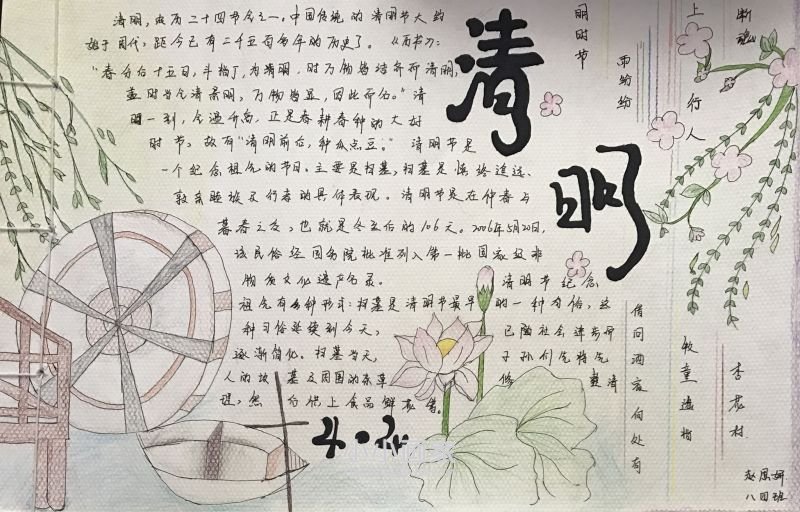 清明,农历二十四节气之一,中国传统的清明节大约
始于周代,距今已有二千五百多年的历史了。《历书》:
"春分后十五日,斗指丁,为清明,时万物皆洁齐而清明,
盖时当气清景明,万物皆显,因此而名。"清
明一到,气温升高,正是春耕春种的大好
时节,故有"清明前后,种瓜点豆。"清明节是
一个纪念祖先的节日。主要是扫墓,扫墓是慎终追远、
敦亲睦族及行孝的具体表现。清明节是在仲春与
暮春之交,也就是冬至后的106天。2006年5月20日,
该民俗经国务院批准列入第一批国家级非
物质文化遗产名录。 清明节纪念
祖先有多种形式:扫墓是清明节最早的一种习俗,这
种习俗延续到今天, 已随社会进步而
逐渐简化。扫墓当天, 子孙们先将先
人的坟墓及周围的杂草 修 清
理,然后供上食品鲜花等。
清
明
清
明时节
雨纷纷
路上行人
欲断魂
借问酒家何处有
牧童遥指
杏花村
赵思妍
八四班